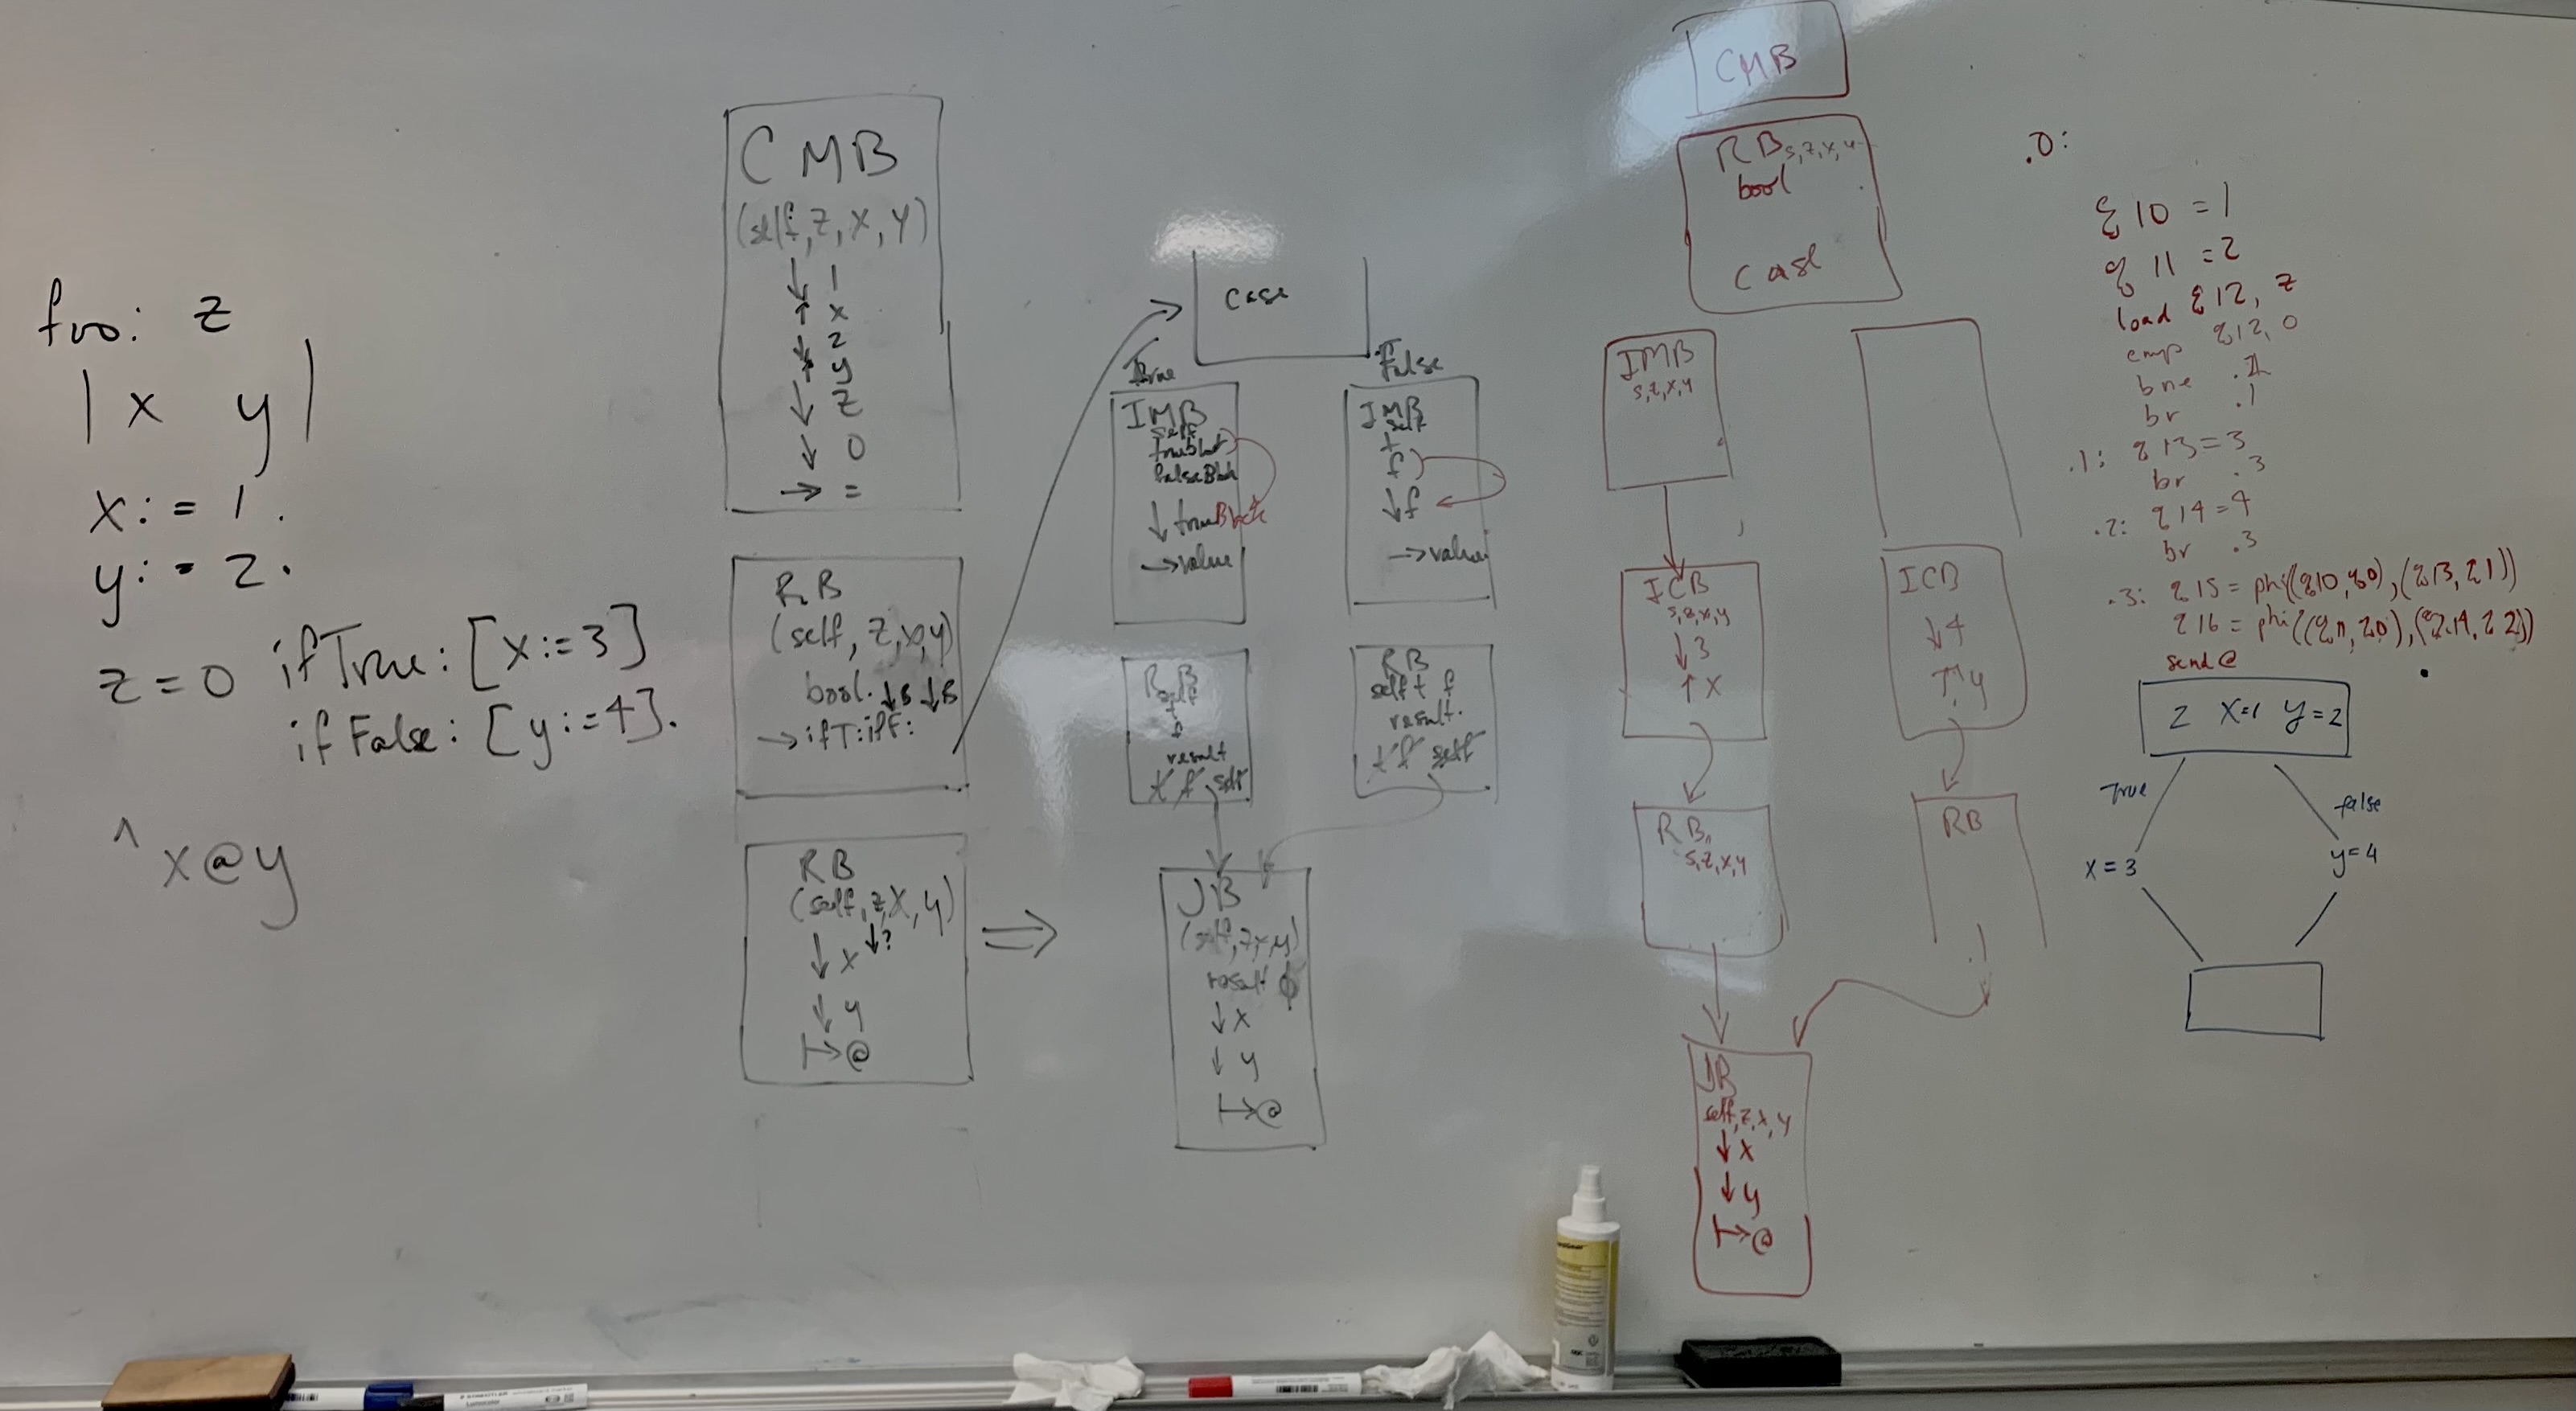 foo: z
| x y |
x := 1.
y := 2.
z = 0 ifTrue: [x := 3]
ifFalse: [y := 4].
^ x@y
CMB
(self, z, x, y)
↓ 1
↑ x
↓ 2
↑ y
↓ z
↓ 0
→ =
RB
(self, z, x, y)
bool. ↓B ↓B
→ ifT: ifF:
RB
(self, z, x, y)
↓ x ↓?
↓ y
↦ @
⇒
case
True
IMB
self
trueBlock
falseBlock
↓ trueBlock
→ value
False
IMB
self
t
f
↓ f
→ value
RB
self
t
f
result
t f self
RB
self t f
result.
t f self
JB
(self, z, x, y)
result ϕ
↓ x
↓ y
↦ @
CMB
RB s,z,x,y
bool
case
IMB
s,z,x,y
ICB
s,z,x,y
↓ 3
↑ x
RB
s,z,x,y
ICB
↓ 4
↑ y
RB
JB
self, z, x, y
↓ x
↓ y
↦ @
.0:
%10 = 1
% 11 = 2
load %12, z
cmp %12, 0
bne
br .1
.1: %13 = 3
br .3
.2: %14 = 4
br .3
.3: %15 = phi((%10, %0), (%13, %1))
%16 = phi((%11, %0), (%14, %2))
send @
z x=1 y=2
True
false
x = 3
y = 4